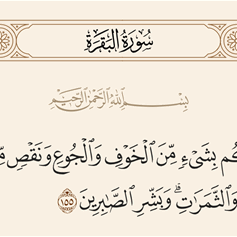 سُورَةُ الْبَقَرَةِ
بِسْمِ اللَّهِ الرَّحْمَٰنِ الرَّحِيمِ
بِشَيْءٍ مِّنَ ٱلْخَوْفِ وَٱلْجُوعِ وَنَقْصٍ
وَٱلثَّمَرَٰتِ ۗ وَبَشِّرِ ٱلصَّٰبِرِينَ ١٥٥